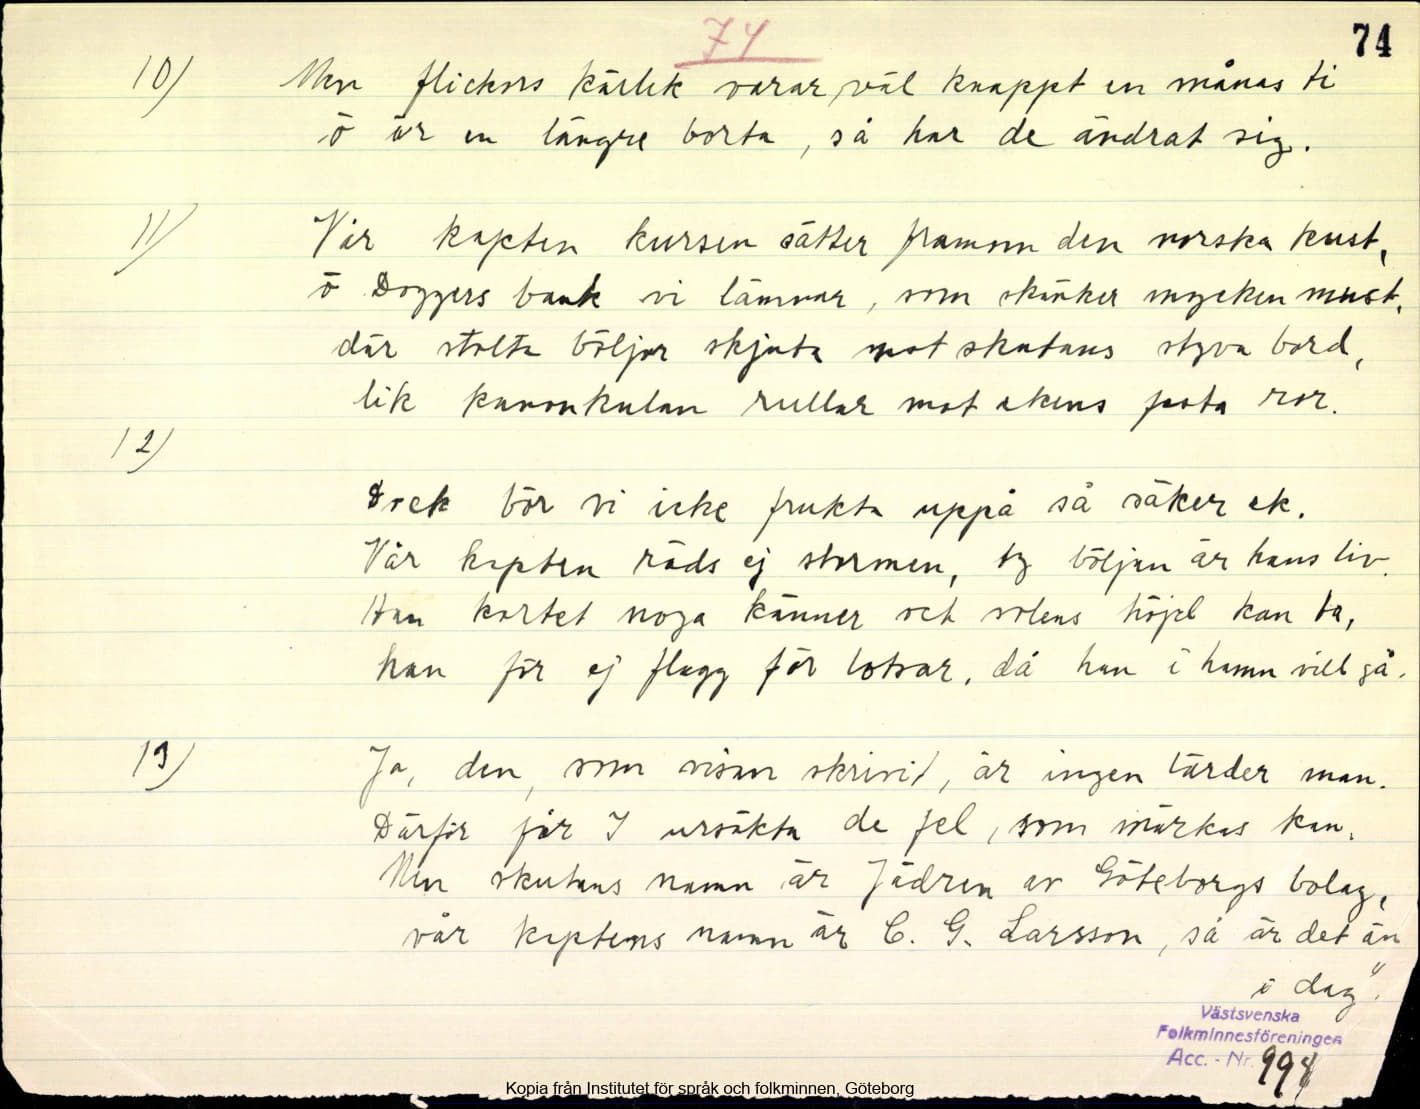 74
74
10) Men flickors kärlek varar, väl knappt en månas ti
ö är en längre borta, så har de ändrat sig.
11) Vår kapten kursen sätter framom den norska kust,
ö Doggers bank vi lämnar, som skänker mycken must,
där stolta böljor skjuta mot skutans styva bord,
lik kanonkulan rullar mot ekens ror.
12)
Dock bör vi icke frukta uppå så säker ek.
Vår kapten räds ej stormen, ty böljan är hans liv.
Han kortet noga känner och solens höjd kan ta,
han för ej flagg för lotsar, då han i hamn vill gå.
13) Ja, den, som visan skrivit, är ingen lärder man.
Därför får I ursäkta de fel, som märkas kan.
Men skutans namn är Jädren av Göteborgs bolag,
vår kaptens namn är C. G. Larsson, så är det än
i dag".
Västsvenska
Folkminnesföreningen
Acc. - Nr. 994
Kopia från Institutet för språk och folkminnen, Göteborg